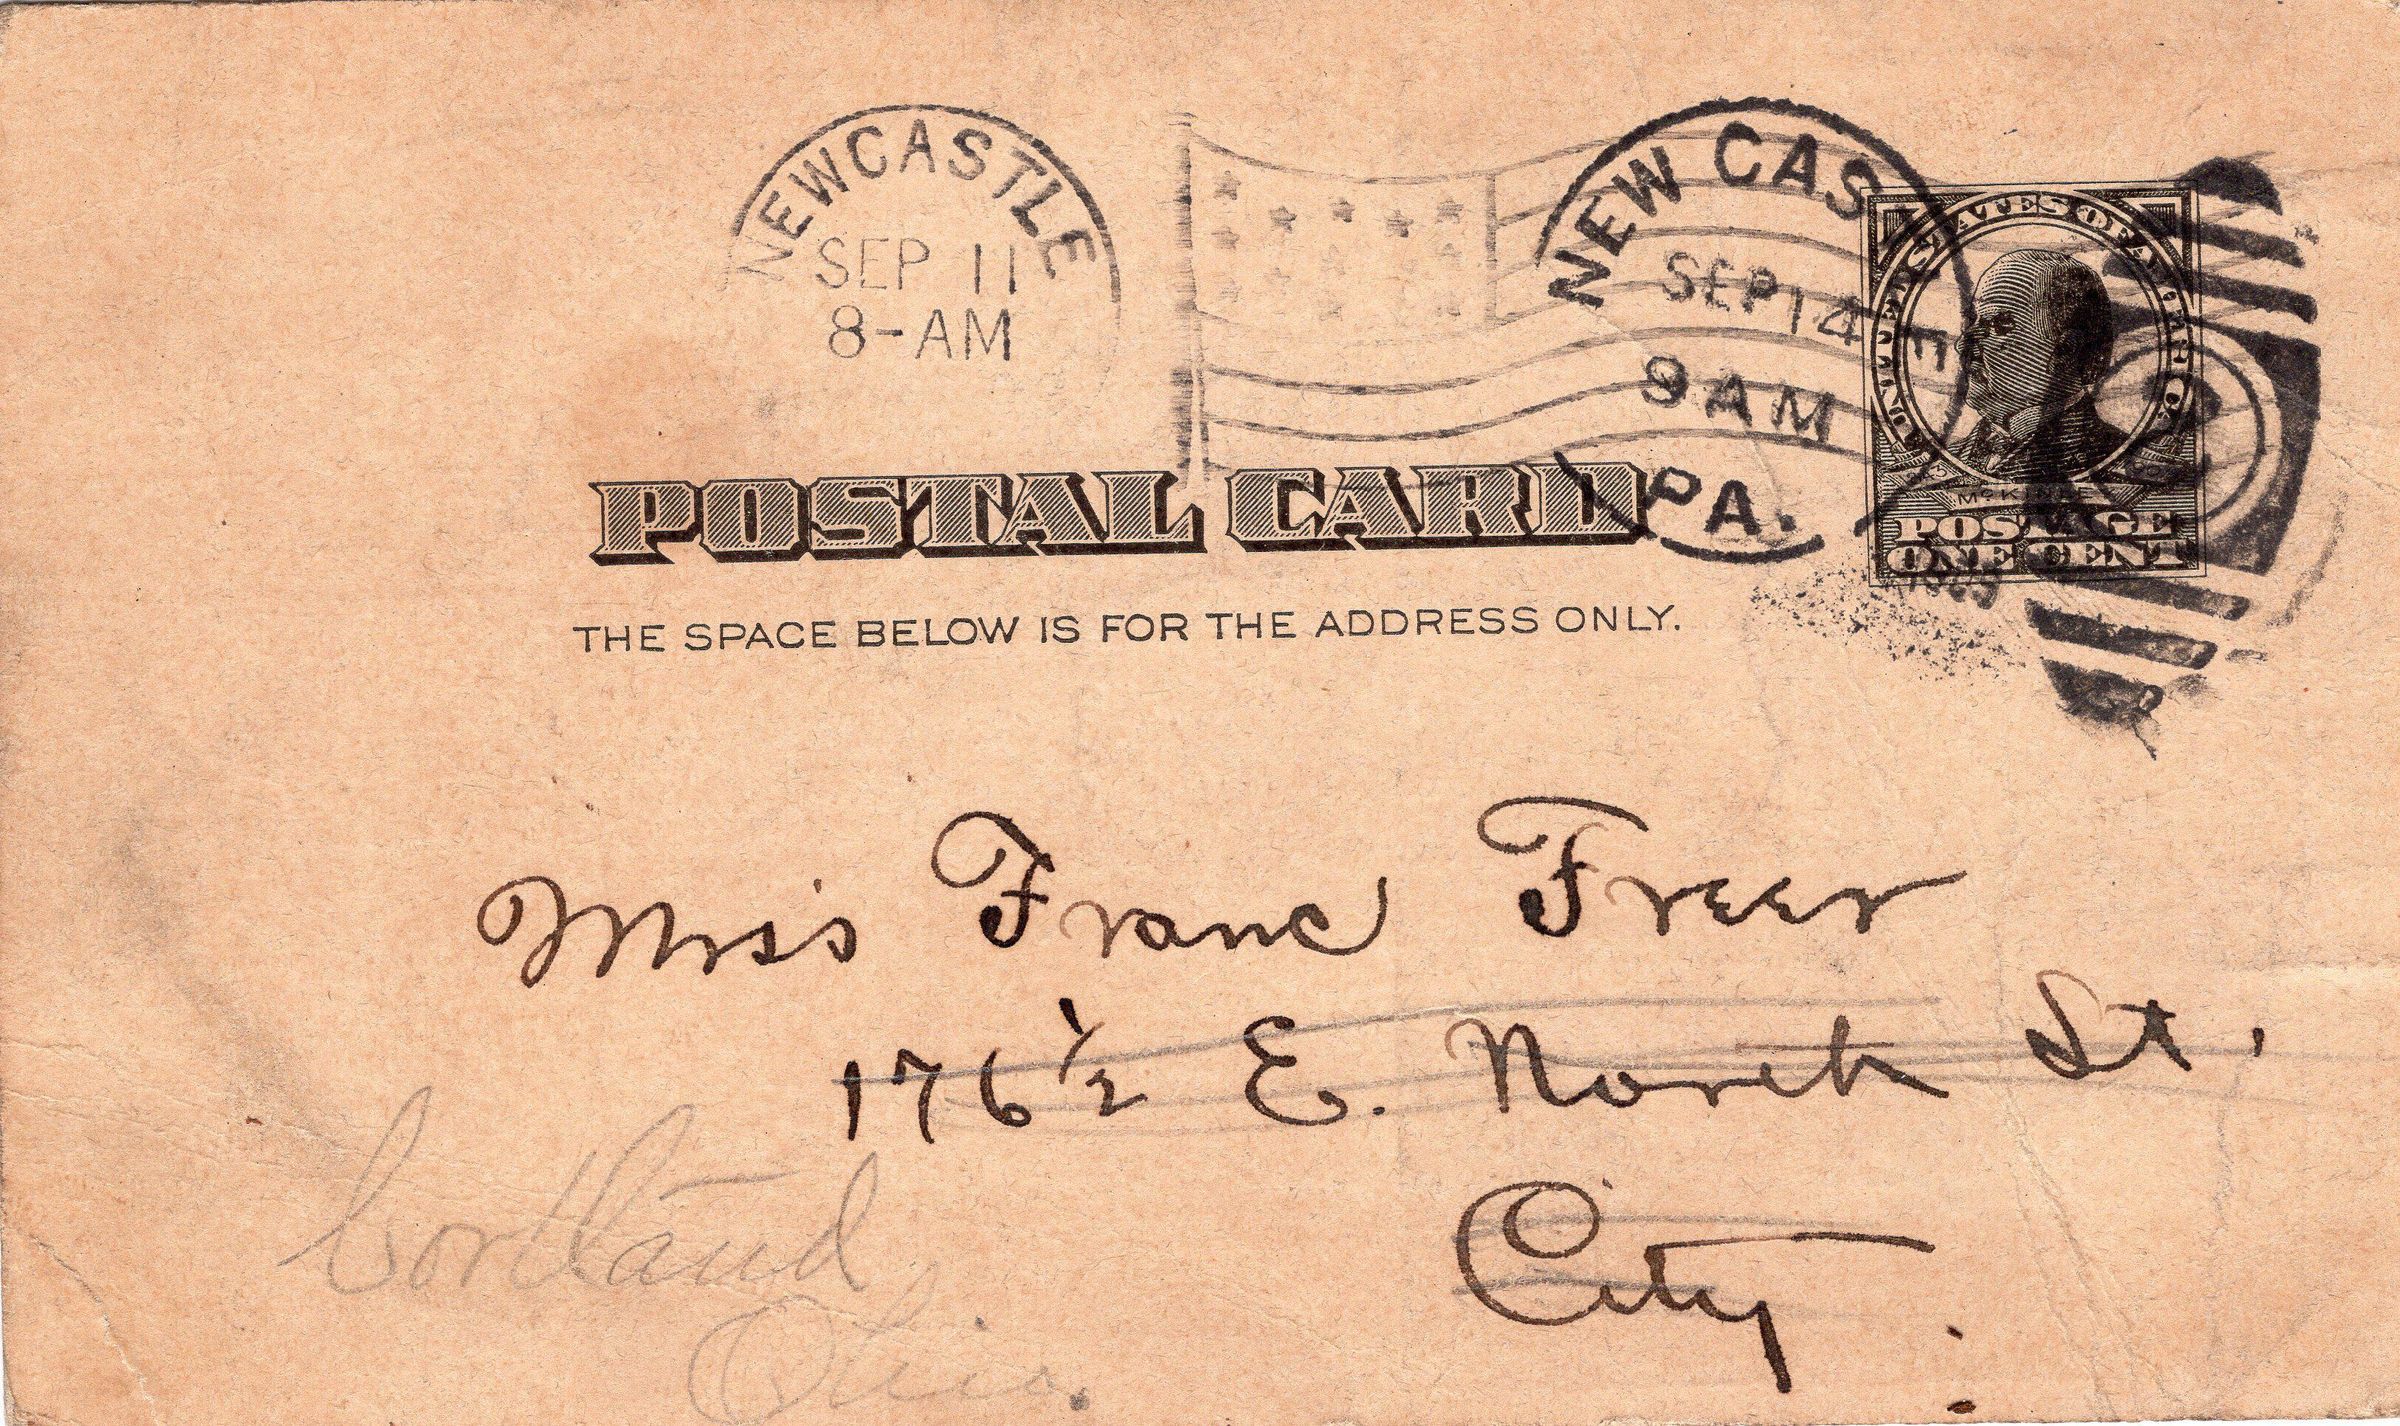 NEWCASTLE
SEP 11
8-AM
NEW CAS
SEP 14
9 AM
PA.
UNITED STATES OF AMERICA
McKINLEY
POSTAGE
ONE CENT
POSTAL CARD
THE SPACE BELOW IS FOR THE ADDRESS ONLY.
Miss Franc Freer
176 1/2 E. North St.
City.
Cortland
Ohio.